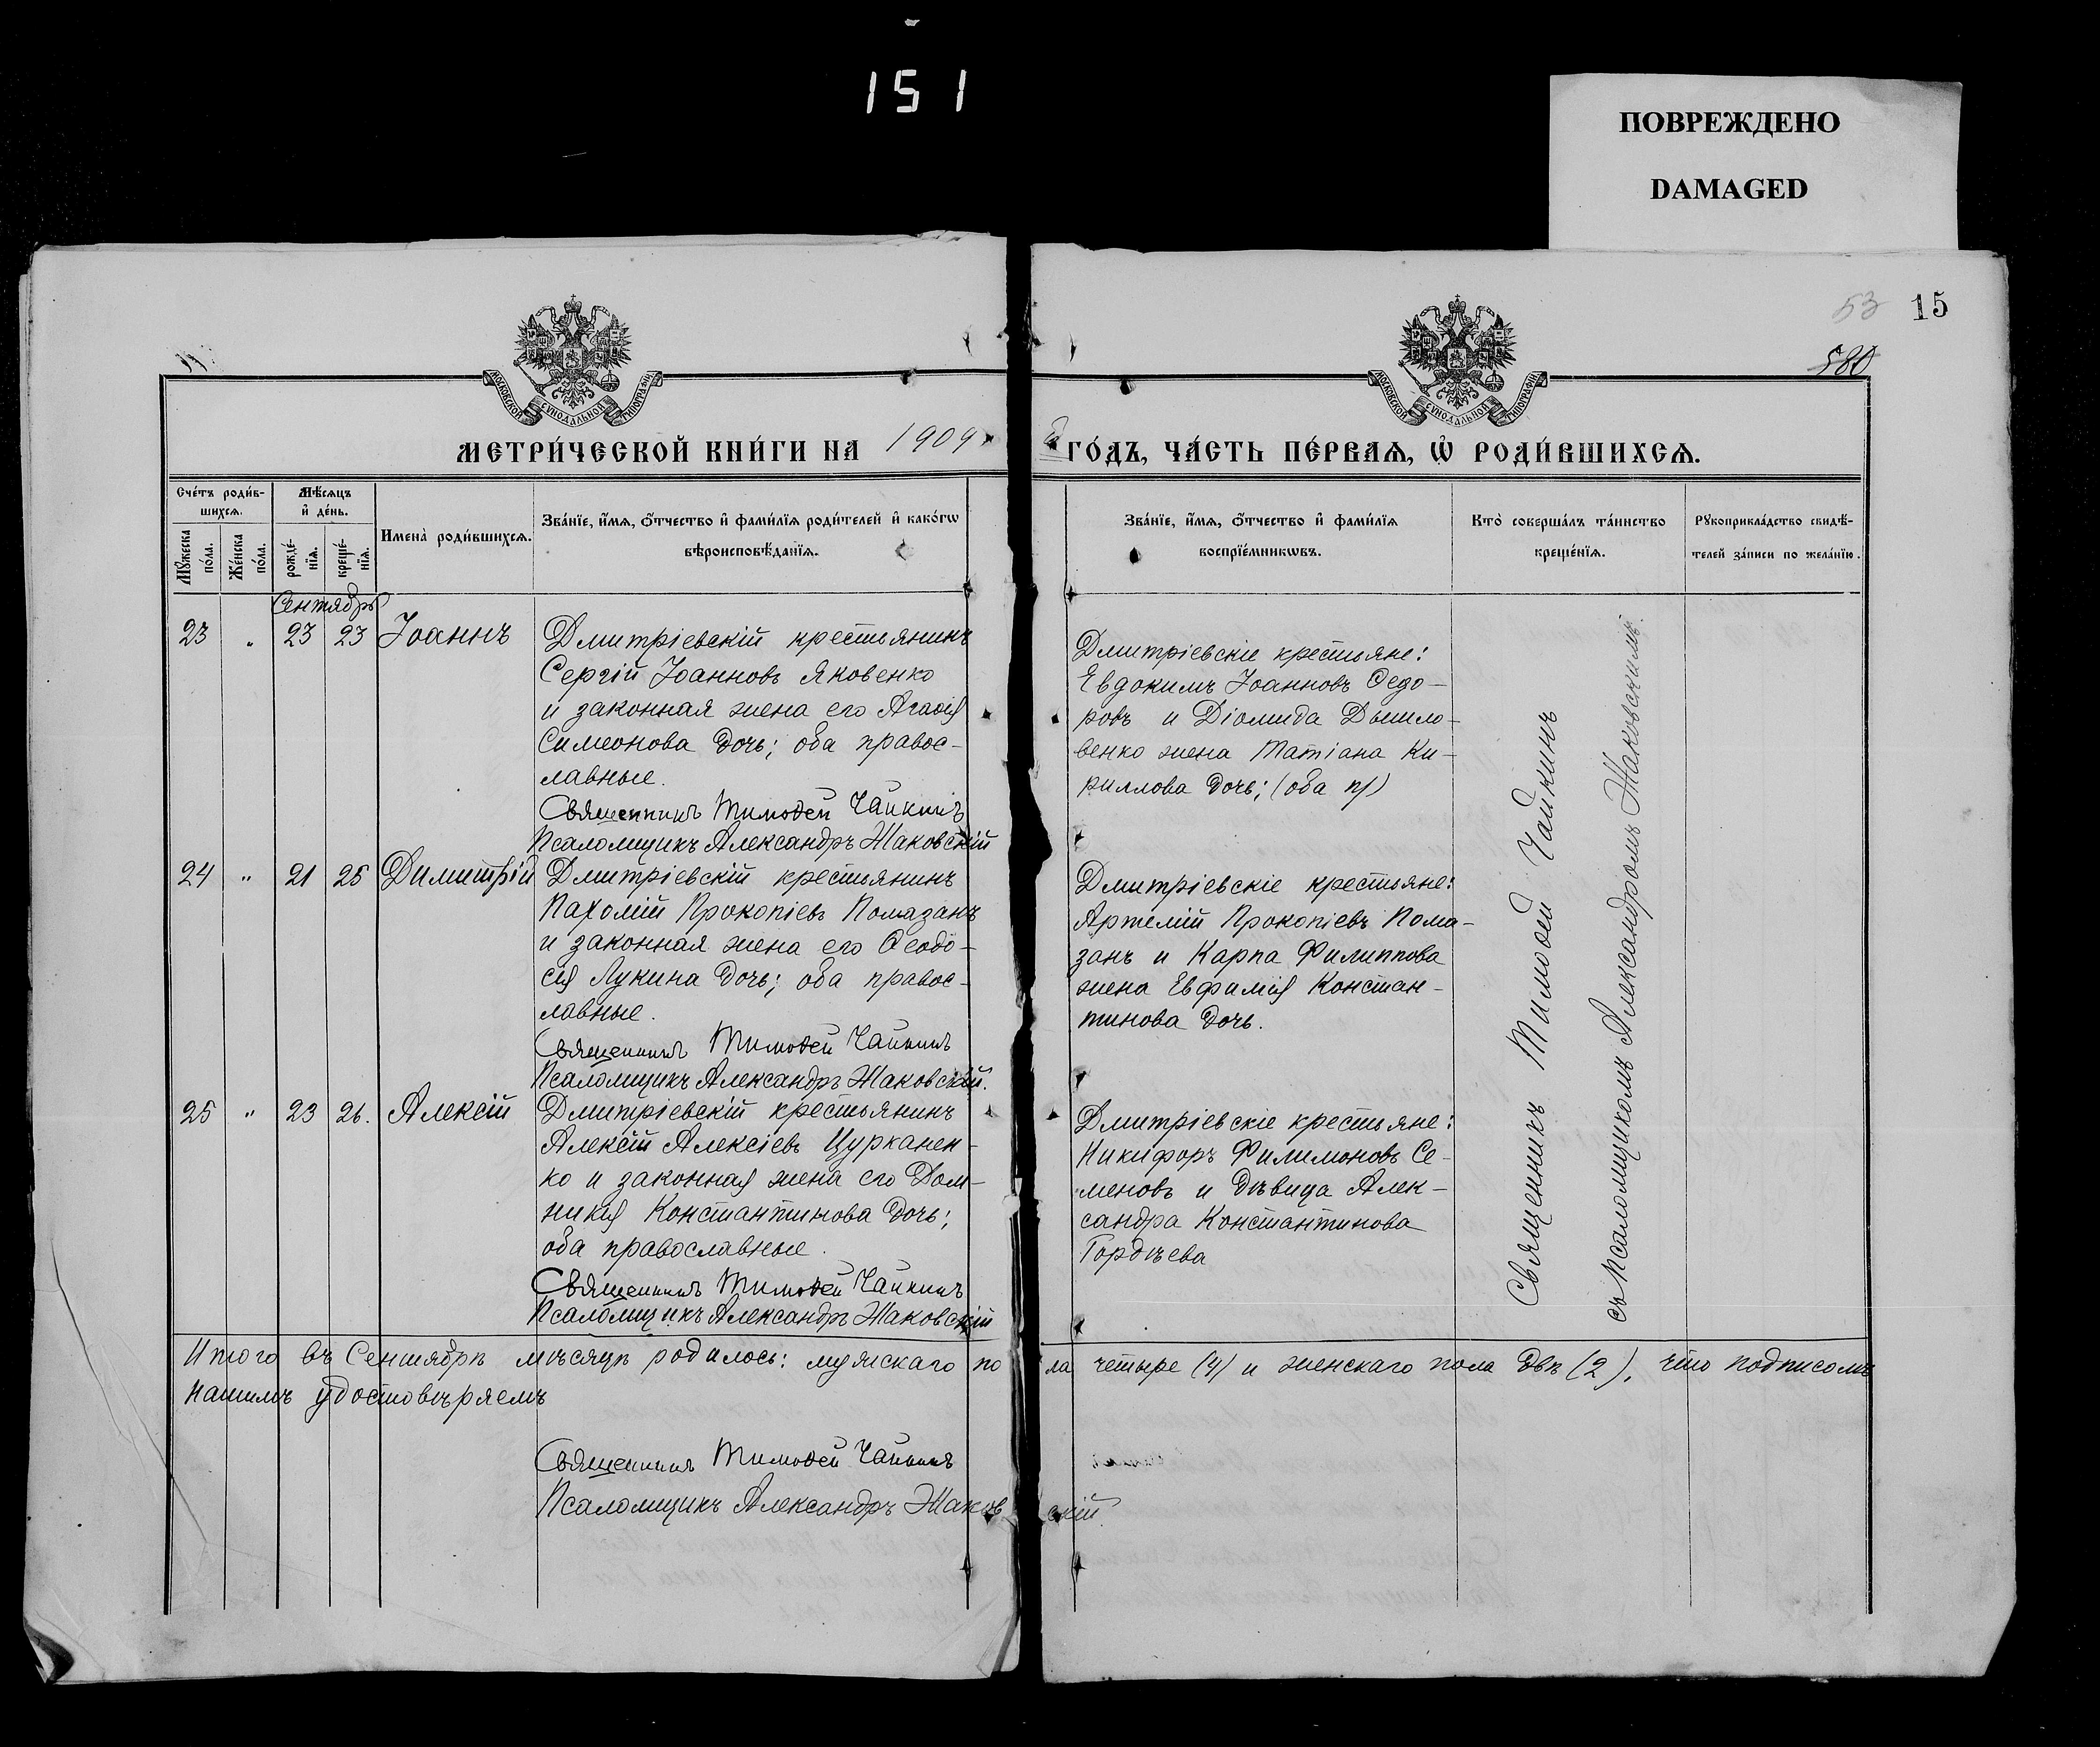 151
ПОВРЕЖДЕНО
DAMAGED
53 15
580
МОСКОВСКОЙ СѴНОДАЛЬНОЙ ТИПОГРАФІИ
МОСКОВСКОЙ СѴНОДАЛЬНОЙ ТИПОГРАФІИ
МЕТРИ́ЧЕСКОЙ КНИ́ГИ НА 1909 й ГО́ДЪ, ЧА́СТЬ ПЕ́РВАѦ, Ѽ РОДИ́ВШИХСѦ.
Сче́тъ роди́в-
шихсѧ.
Мꙋжеска по́ла.
Же́нска по́ла.
Мѣ́сѧцъ
и҆ де́нь.
рожде́-
нїѧ.
креще́-
нїѧ.
Имена̀ роди́вшихсѧ.
Зва́нїе, и҆́мѧ, ѻ҆́тчество и҆ фами́лїѧ роди́телей и҆ како́гѡ
вѣроисповѣ́данїѧ.
Зва́нїе, и҆́мѧ, ѻ҆́тчество и҆ фами́лїѧ
воспрїе́мникѡвъ.
Кто̀ соверша́лъ та́инство
креще́нїѧ.
Рꙋкоприкла́дство свидѣ́-
телей за́писи по жела́нїю.
Сентябрь
23 „ 23 23 Іоаннъ
Дмитріевскій крестьянинъ
Сергій Іоанновъ Яковенко
и законная жена его Агаѳія
Симеонова дочь; оба правос-
лавные.
Священникъ Тимоѳей Чайкинъ
Псаломщикъ Александръ Жаковскій
Дмитріевскіе крестьяне:
Евдокимъ Іоанновъ Ѳедо-
ровъ и Діомида Дымло-
венко жена Татіана Ки-
риллова дочь; (оба пр)
24 „ 21 25 Димитрій
Дмитріевскій крестьянинъ
Пахомій Прокопіевъ Помазанъ
и законная жена его Ѳеодо-
сія Лукина дочь; оба правос-
лавные.
Священникъ Тимоѳей Чайкинъ
Псаломщикъ Александръ Жаковскій.
Дмитріевскіе крестьяне:
Артемій Прокопіевъ Пома-
занъ и Карпа Филиппова
жена Евфимія Констан-
тинова дочь.
25 „ 23 26. Алексій
Дмитріевскій крестьянинъ
Алексій Алексіевъ Цурканен-
ко и законная жена его Дом-
никія Константинова дочь;
оба православные.
Священникъ Тимоѳей Чайкинъ
Псаломщикъ Александръ Жаковскій
Дмитріевскіе крестьяне:
Никифоръ Филимоновъ Се-
меновъ и дѣвица Алек-
сандра Константинова
Гордѣева
Священникъ Тимоѳей Чайкинъ
съ псаломщикомъ Александромъ Жаковскимъ.
Итого въ Сентябрѣ мѣсяцѣ родилось: мужскаго пола четыре (4) и женскаго пола двѣ (2), что подписомъ
нашимъ удостовѣряемъ
Священникъ Тимоѳей Чайкинъ
Псаломщикъ Александръ Жаковскій.